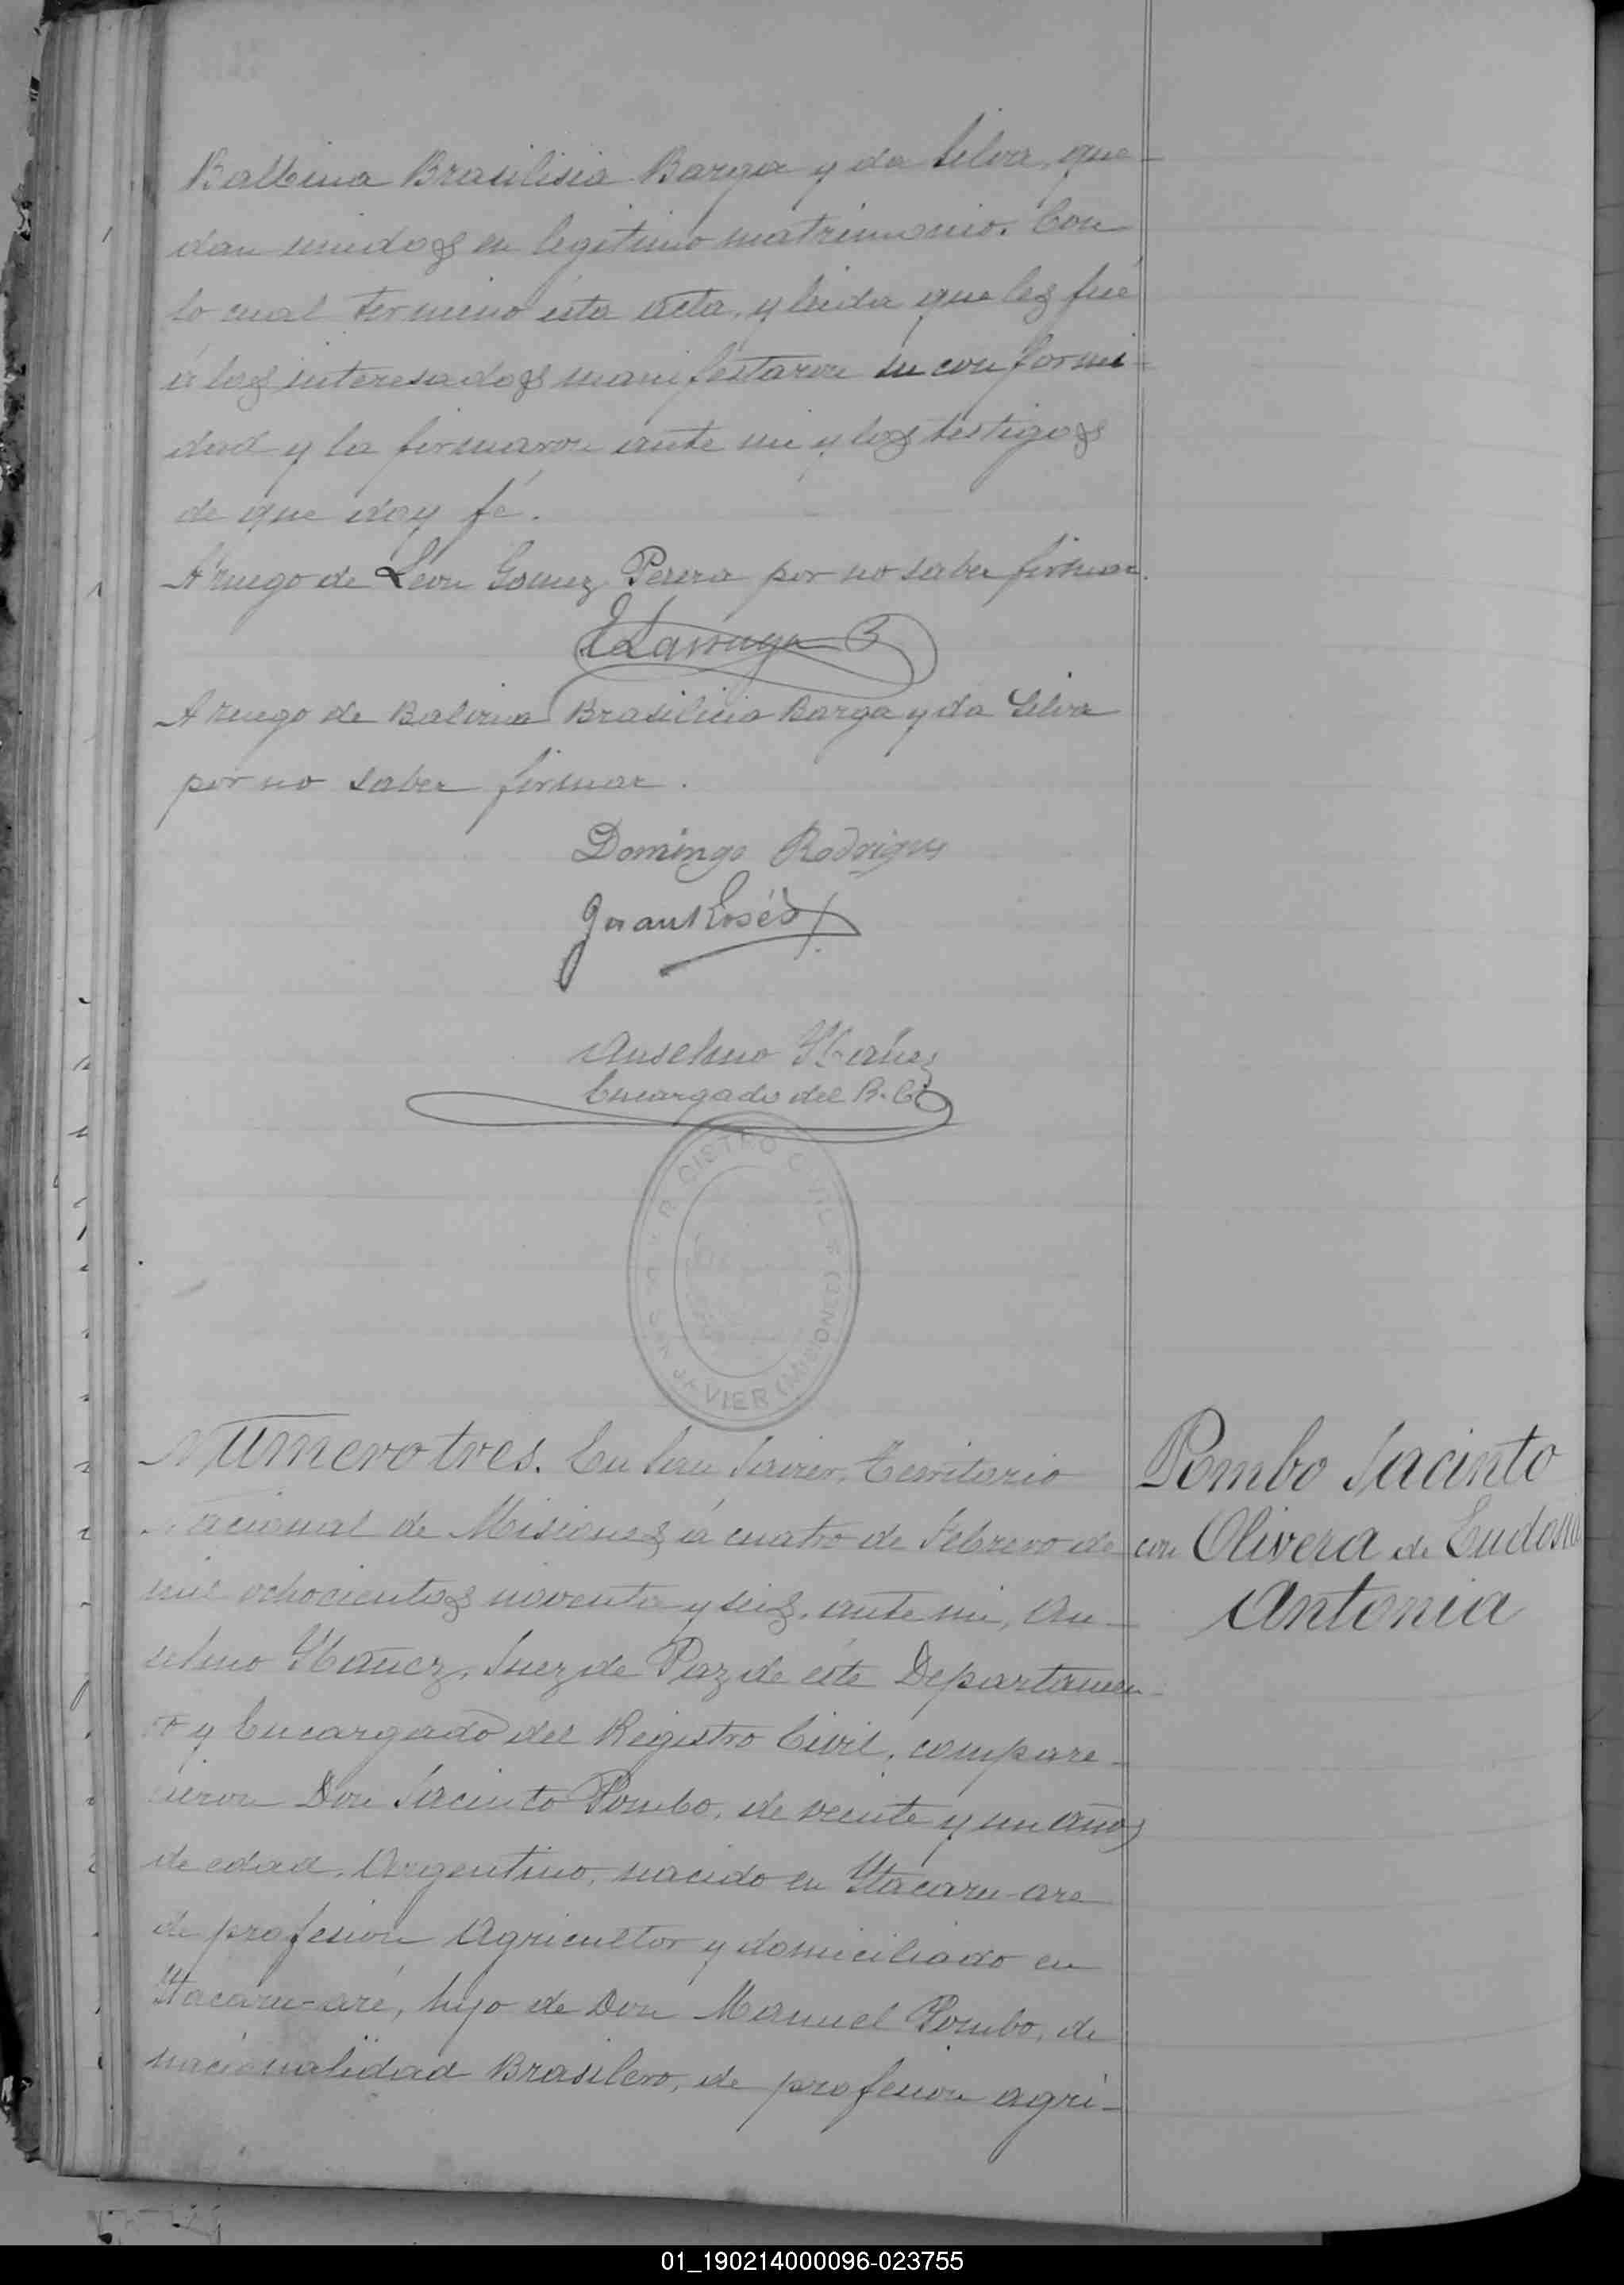 Balbina Brasilisia Barga y da Silva, que-
dan unidos en legitimo matrimonio. Con
lo cual termino esta acta, y leida que les fué
á los interesados manifestaron su conformi-
dad y la firmaron ante mi y los testigos
de que doy fé.
A ruego de Leon Gomez Perera por no saber firmar.
A ruego de Balvina Brasilicia Barga y da Silva
por no saber firmar.
Domingo Rodrigues
Juan
Anselmo Ybañez
Encargado del R. C.
REGISTRO CIVIL
SAN JAVIER (MISIONES)
Numero tres. En San Javier, Territorio
Nacional de Misiones á cuatro de Febrero de
mil ochocientos noventa y seis, ante mi, An-
selmo Ybañez, Juez de Paz de este Departamen-
to y Encargado del Registro Civil, compare-
cieron Don Jacinto Pombo, de veinte y un años
de edad, Argentino, nacido en Ytacaru-are
de profesion Agricultor y domiciliado en
Ytacaru-aré, hijo de Don Manuel Pombo, de
nacionalidad Brasilero, de profesion agri-
Pombo Jacinto
con Olivera de Eudosia
Antonia
01_190214000096-023755